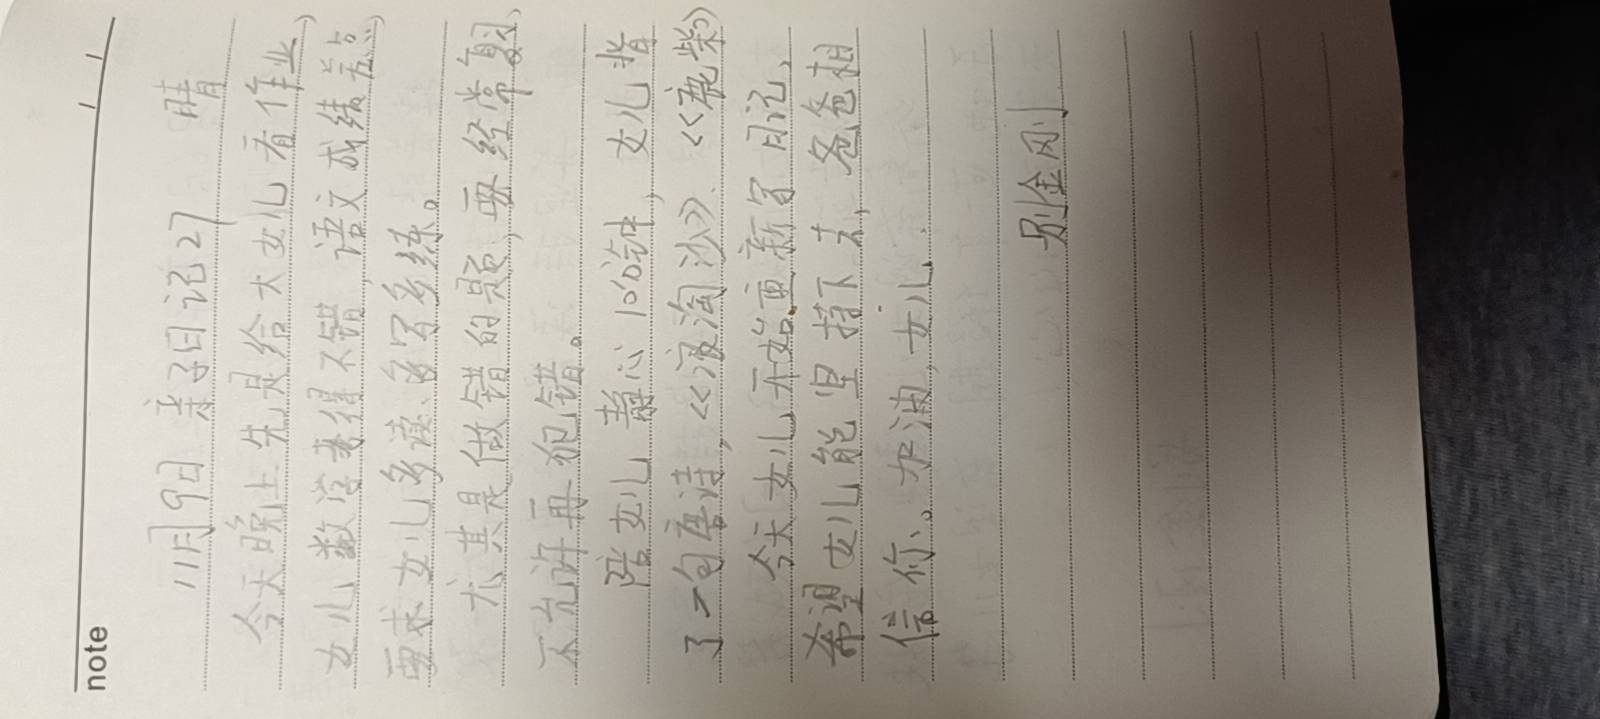 note
11月9日 亲子日记27 晴
今天晚上先是给大女儿看作业,
女儿数学考得不错,语文成绩差点,
要求女儿多读、多写多练。
尤其是做错的题,要经常复习,
不允许再犯错。
陪女儿静心10分钟,女儿背
了一句唐诗,《浪淘沙》、《鹿柴》
今天女儿开始重新写日记,
希望女儿能坚持下去,爸爸相
信你。加油,女儿.
别金刚